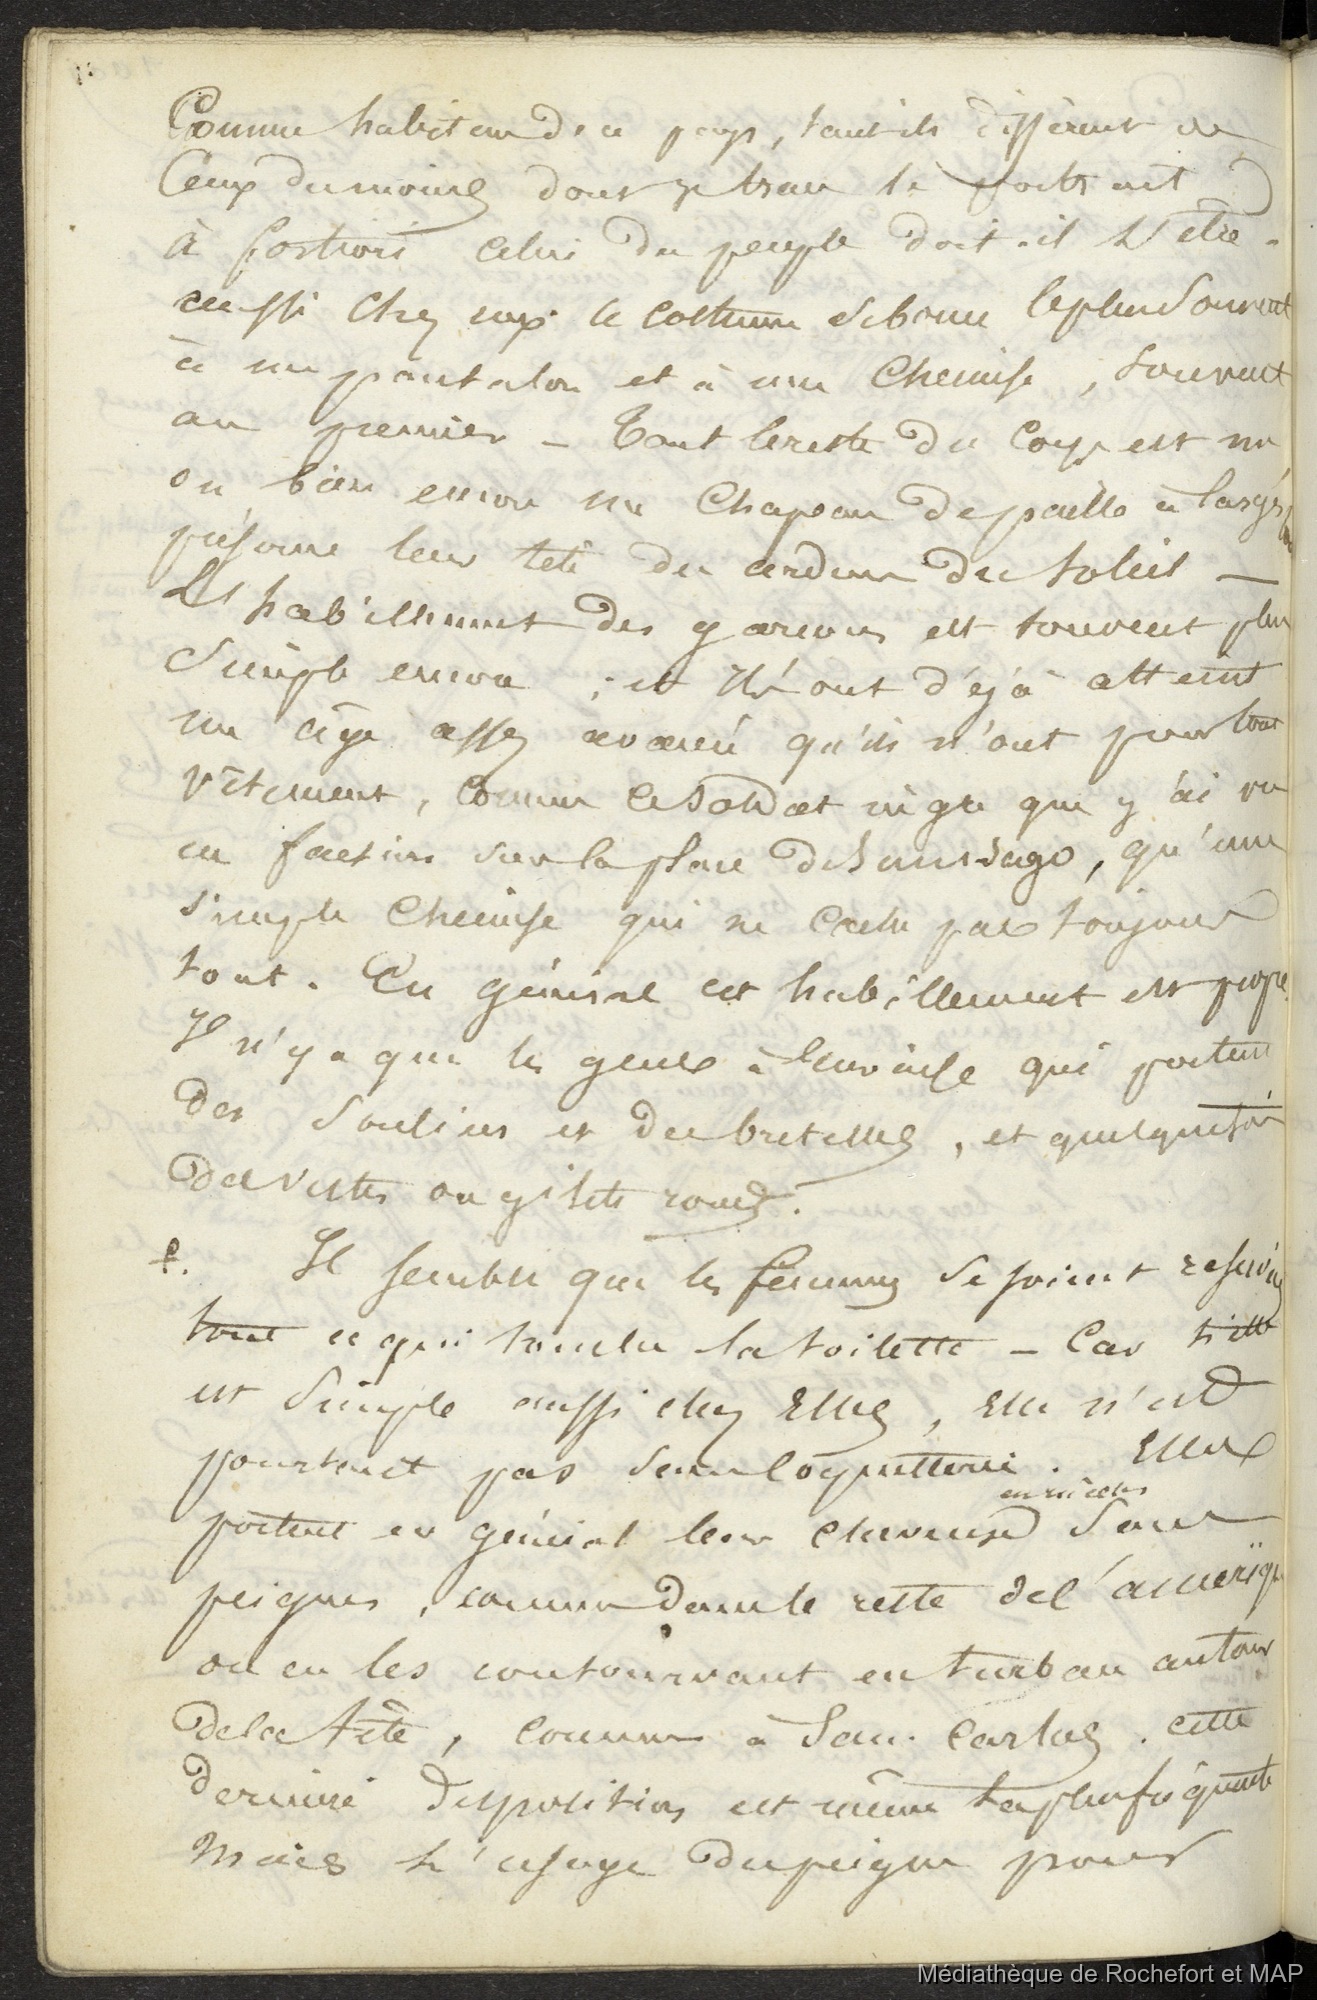 Comme habitans de ce pays, tant ils diffèrent de
Ceux du moins dont je trace le portrait
à fortiori celui du peuple doit-il l'être.
aussi chez eux le costume se borne le plus souvent
à un pantalon et à une chemise, souvent
au premier — Tout le reste du corps est nu
ou bien encore un chapeau de paille à larges
préserve leur tête des ardeurs du soleil —
L'habillement des garcons est souvent plus
simple encore ; et ils ont déjà atteint
un âge assez avancé qu'ils n'ont pour tout
vêtement, comme ce soldat nègre que j'ai vu
en faction sur la place de Sansiago, qu'une
simple chemise qui ne cache pas toujours
tout. En général cet habillement est propre
Il n'y a que les gens à leur aise qui portent
des souliers et des bretelles, et quelquefois
des vestes ou gilets ronds.
f. Il semble que les femmes se soient reservées
tout ce qui touche la toilette — Car si elle
est simple aussi chez Elles, Elle n'est
pourtant pas sans coquetterie. Elles
en nattes
portent en général leur cheveux sans
peignes, comme dans le reste de l'amérique
ou en les contournant en turban autour
de la tête, comme à San-Carlos. cette
dernière disposition est même la plus fréquente
Mais l'usage du peigne pour
Médiathèque de Rochefort et MAP